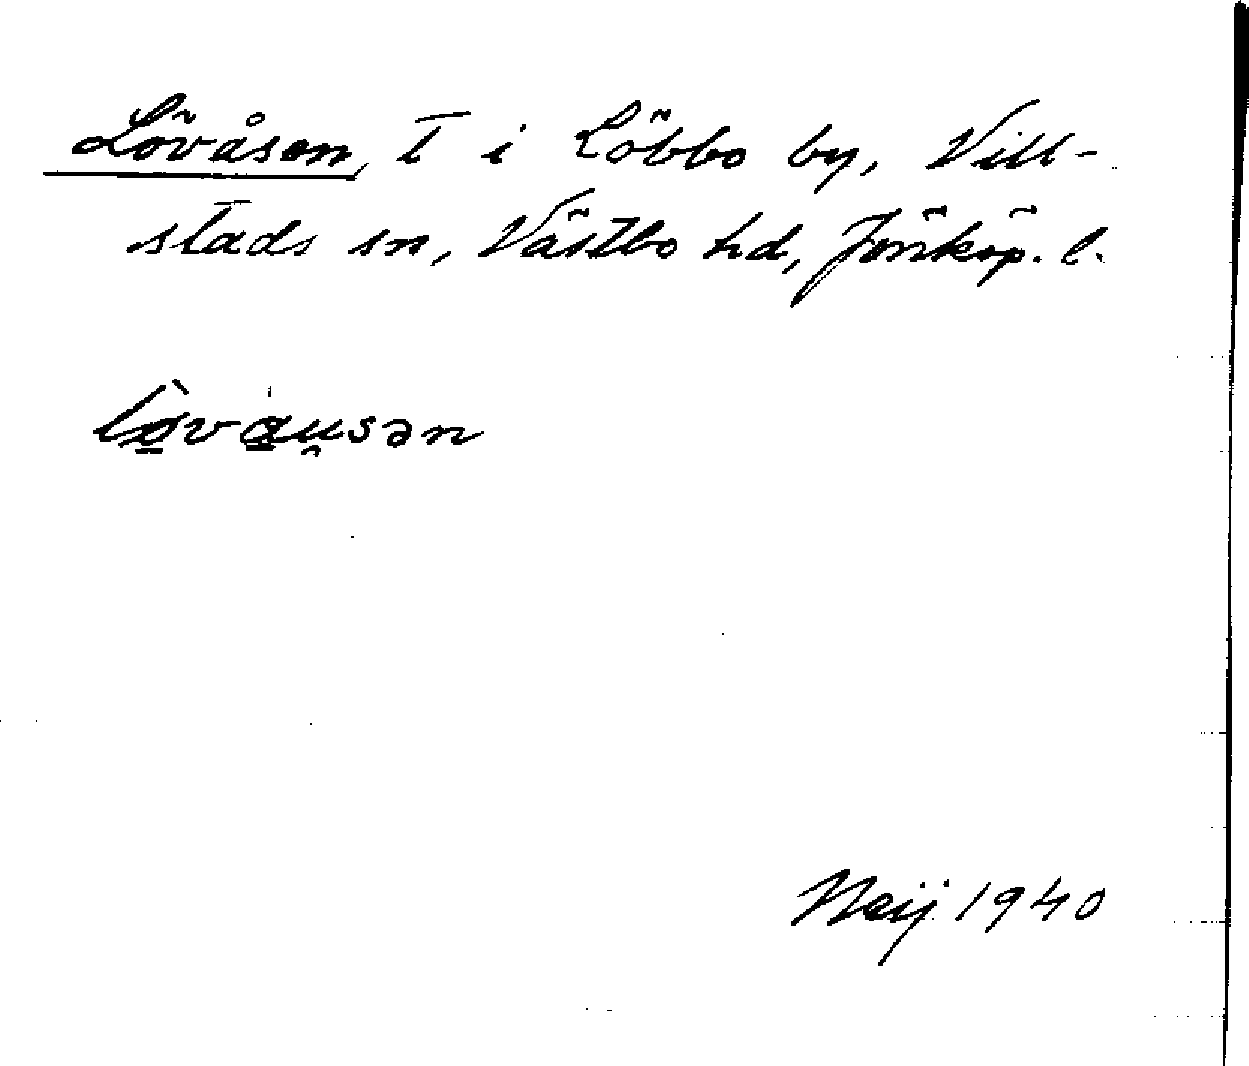 Lövåsen, T i Löbbo by, Vill-
stads sn, Västbo hd, Jönköp. l.
lø̀va̲u̯sən
Neij 1940